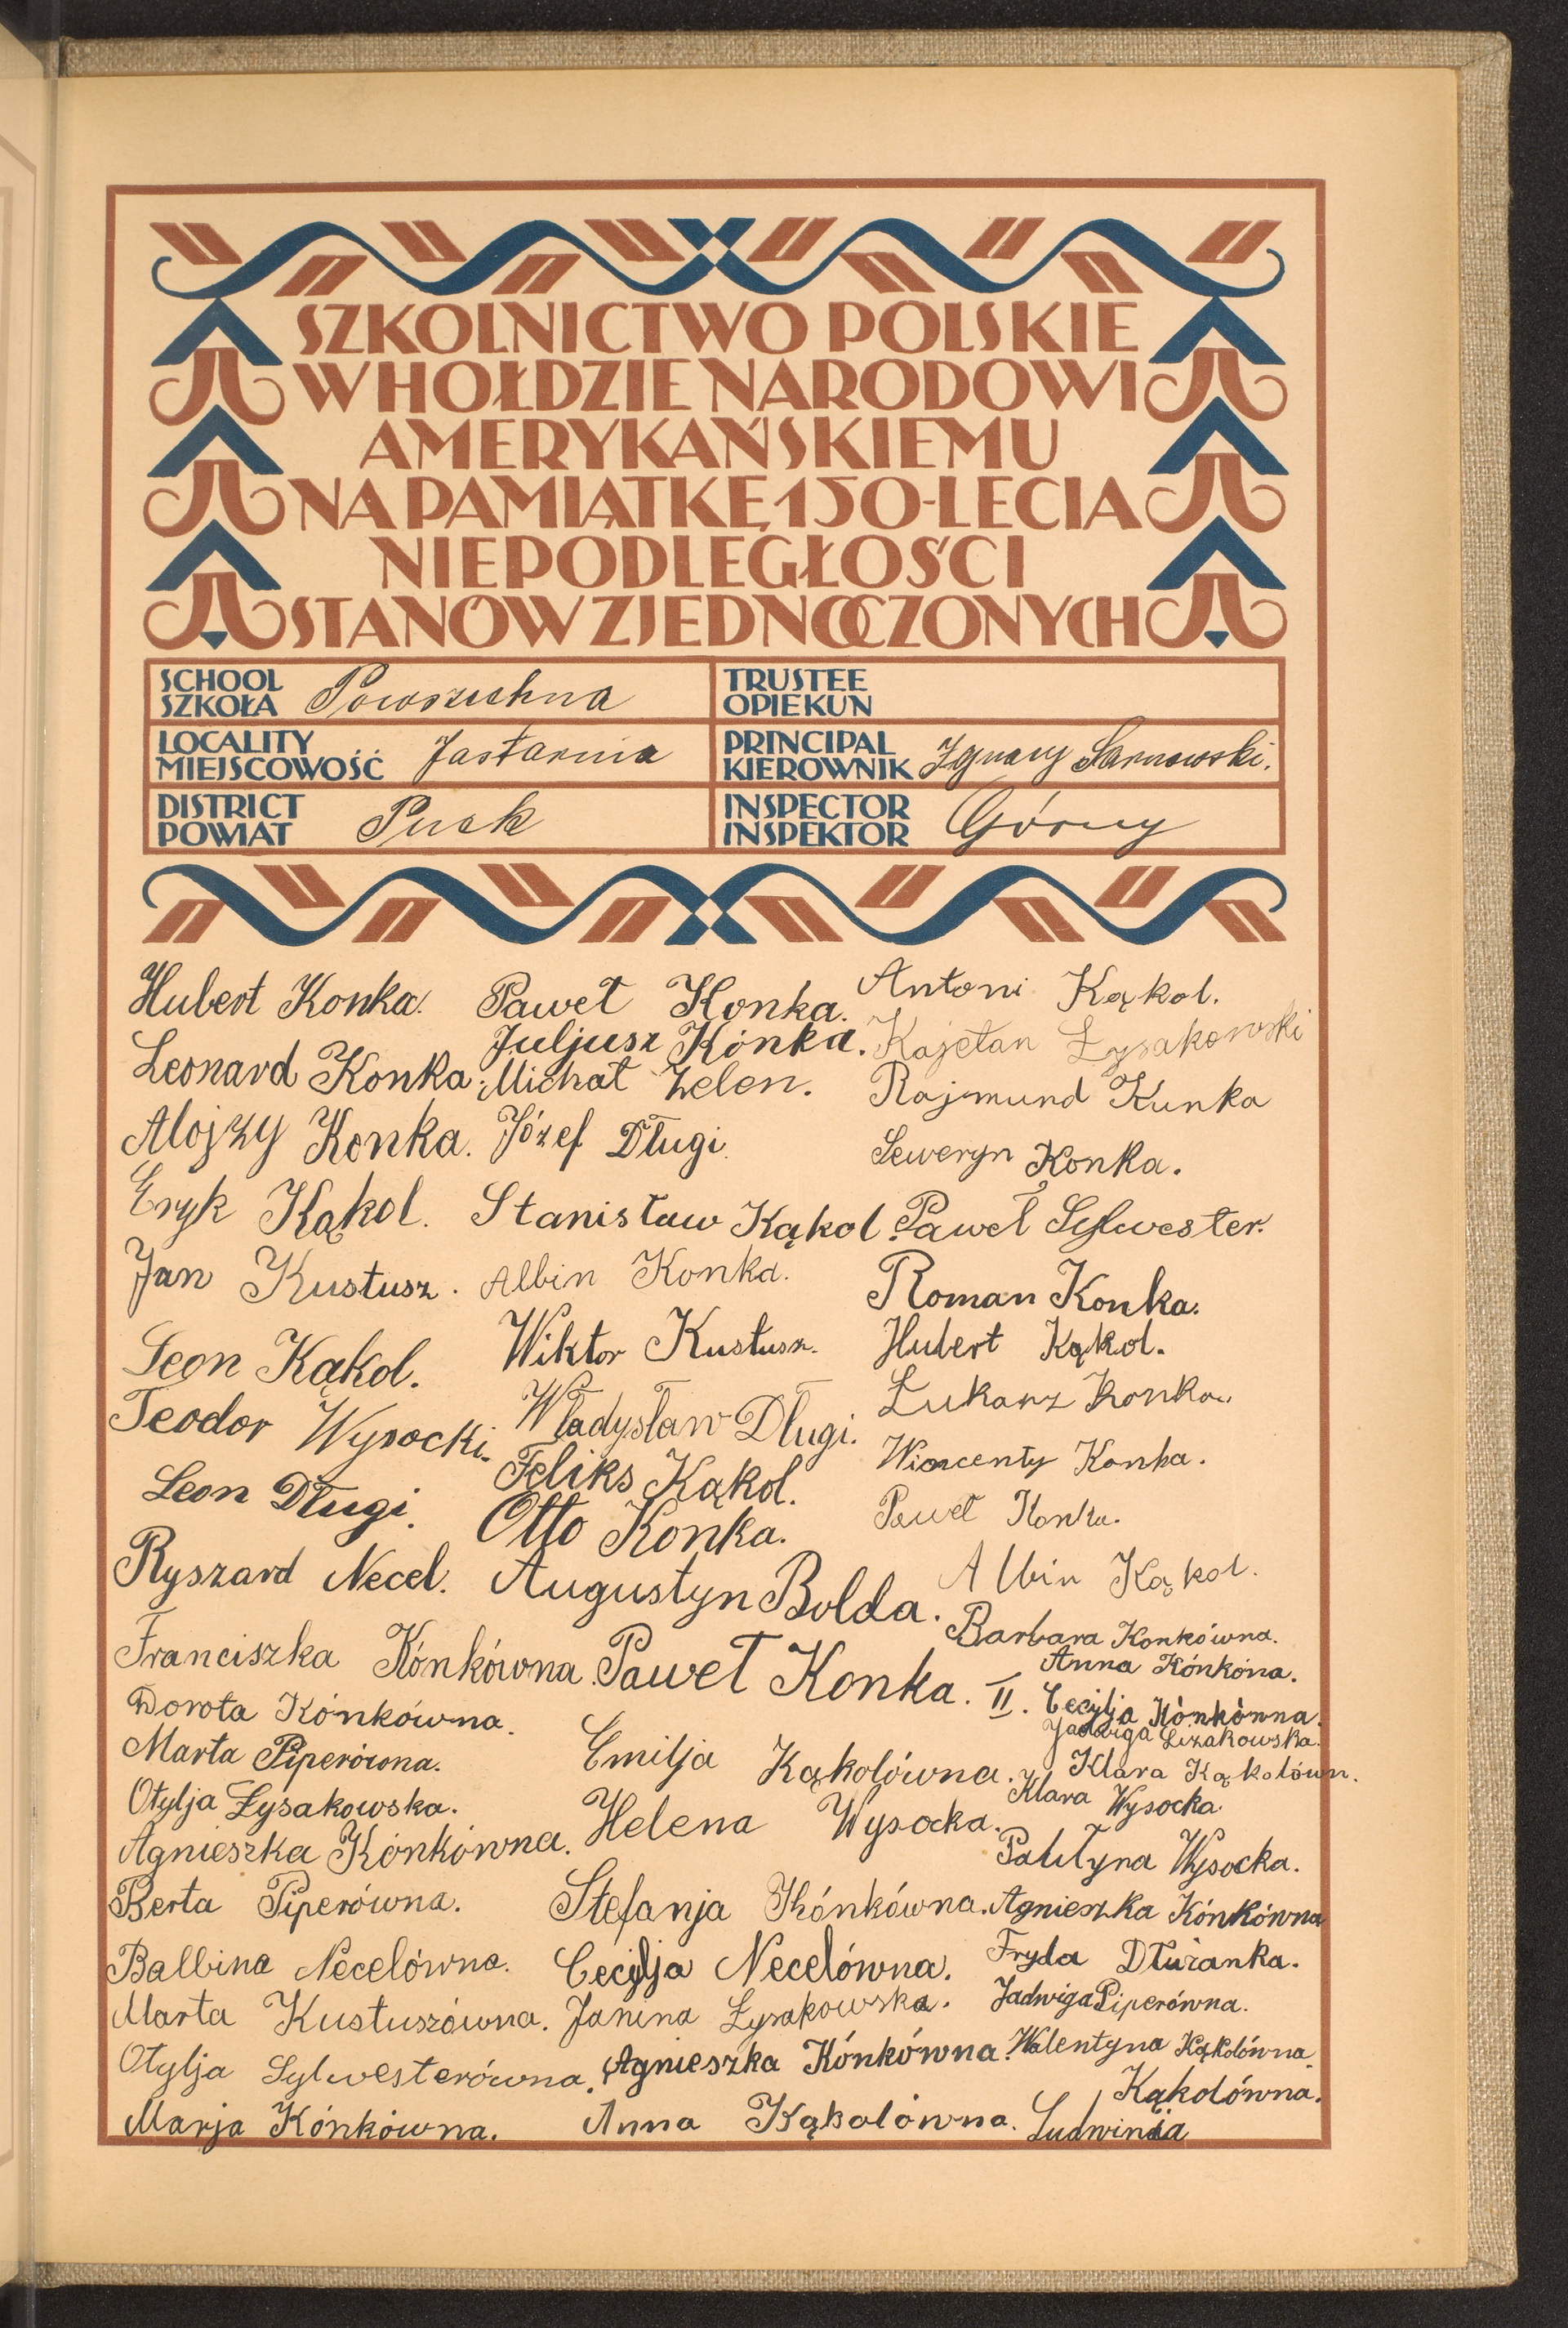 SZKOLNICTWO POLSKIE
W HOŁDZIE NARODOWI
AMERYKAŃSKIEMU
NA PAMIĄTKĘ 150-LECIA
NIEPODLEGŁOŚCI
STANÓW ZJEDNOCZONYCH
SCHOOL
SZKOŁA Powszechna
TRUSTEE
OPIEKUN
LOCALITY
MIEJSCOWOŚĆ Jastarnia
PRINCIPAL
KIEROWNIK Ignacy Sarnowski.
DISTRICT
POWIAT Puck
INSPECTOR
INSPEKTOR Górny
Hubert Konka.
Leonard Konka.
Alojzy Konka.
Eryk Kąkol.
Jan Kustusz.
Leon Kąkol.
Teodor Wysocki.
Leon Długi.
Ryszard Necel.
Franciszka Kónkówna.
Dorota Kónkówna.
Marta Piperówna.
Otylja Łysakowska.
Agnieszka Kónkówna.
Berta Piperówna.
Balbina Necelówna.
Marta Kustuszówna.
Otylja Sylwesterówna.
Marja Kónkówna.
Paweł Konka.
Juljusz Kónka.
Michał Zelen.
Józef Długi.
Stanisław Kąkol.
Albin Konka.
Wiktor Kustusz.
Władysław Długi.
Feliks Kąkol.
Otto Konka.
Augustyn Bolda.
Paweł Konka. II.
Emilja Kąkolówna.
Helena Wysocka.
Stefanja Kónkówna.
Cecylja Necelówna.
Janina Łysakowska.
Agnieszka Kónkówna.
Anna Kąkolówna.
Antoni Kąkol.
Kajetan Łysakowski
Rajmund Kunka
Seweryn Konka.
Paweł Sylwester.
Roman Konka.
Hubert Kąkol.
Łukarz Konka.
Wincenty Konka.
Paweł Konka.
Albin Kąkol.
Barbara Konkówna.
Anna Kónkóna.
Cecylja Kónkówna.
Jadwiga Lizakowska.
Klara Kąkolówn.
Klara Wysocka
Paulyna Wysocka.
Agnieszka Kónkówna
Fryda Dłużanka.
Jadwiga Piperówna.
Walentyna Kąkolówna.
Kąkolówna.
Ludwinia